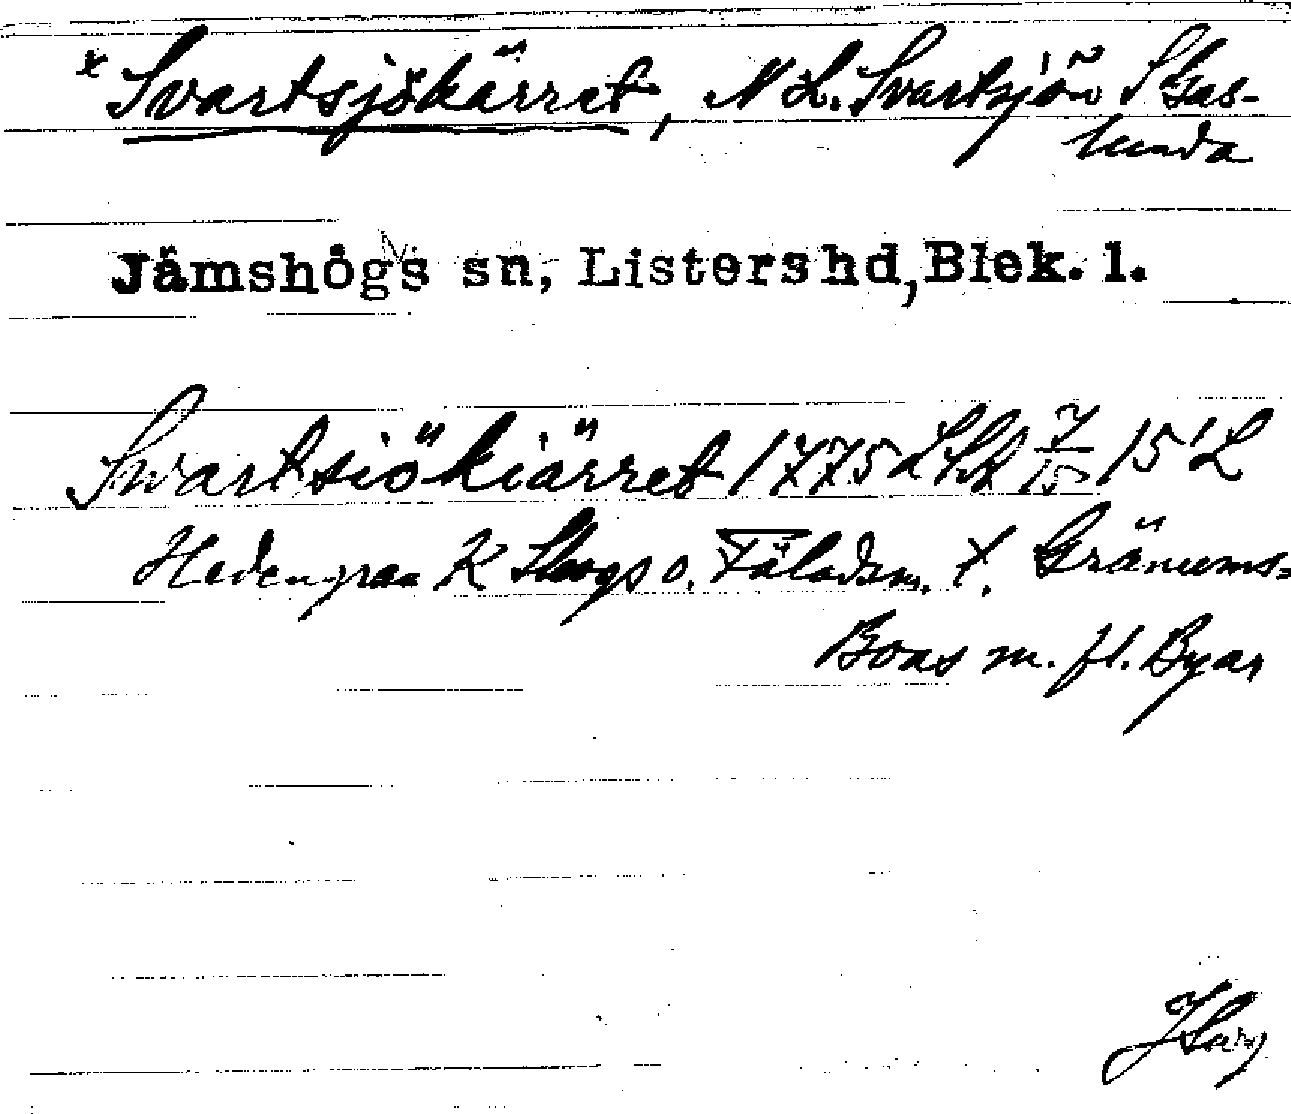 x Svartsjökärret, N L. Svartsjön S Gas-
lunda
Jämshögs sn, Listers hd, Blek. l.
Swartsiökiärret 1775 LSA 7/15 15'L
Hedengran K Skogs o. Fäladsm. t. Gränums-
Boas m. fl. Byar